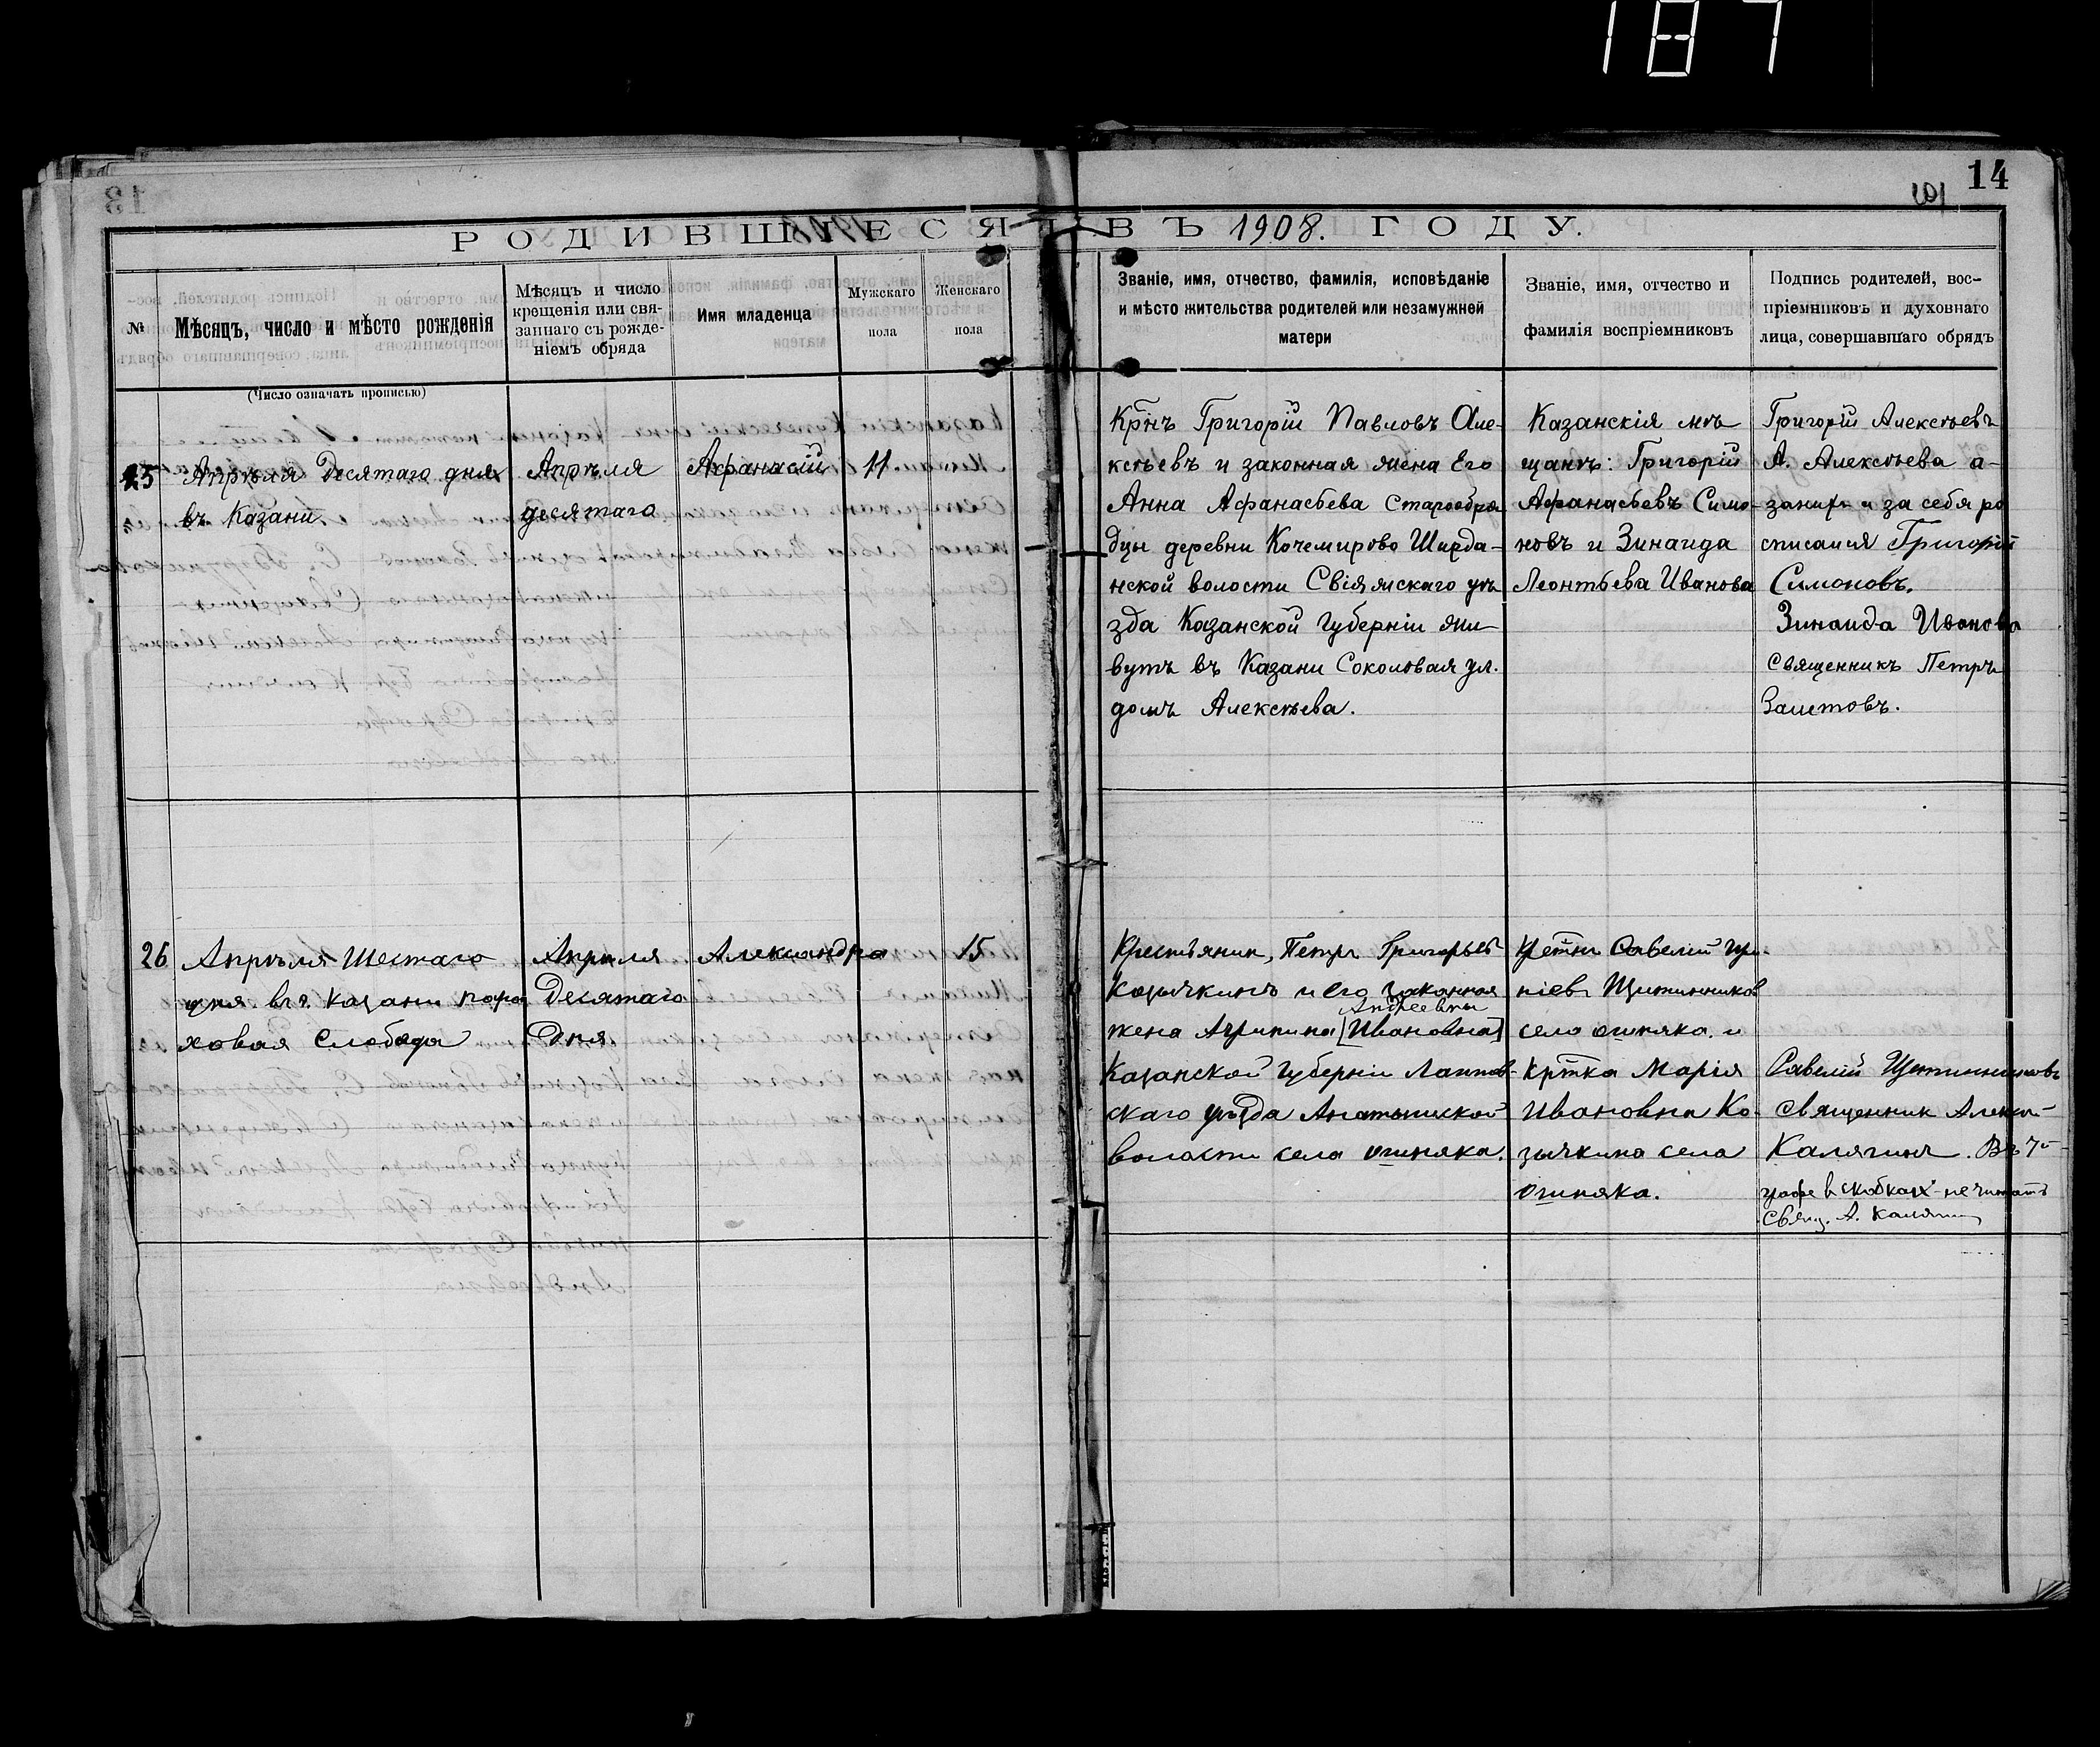 187
14
101
РОДИВШІЕСЯ ВЪ 1908. ГОДУ.
№
Мѣсяцъ, число и мѣсто рожденія
(Число означать прописью)
Мѣсяцъ и число
крещенія или свя-
заннаго съ рожде-
ніемъ обряда
Имя младенца
Мужскаго
пола
Женскаго
пола
Званіе, имя, отчество, фамилія, исповѣданіе
и мѣсто жительства родителей или незамужней
матери
Званіе, имя, отчество и
фамилія воспріемниковъ
Подпись родителей, вос-
пріемниковъ и духовнаго
лица, совершавшаго обрядъ
25
Апрѣля Десятаго дня
въ Казани
Апрѣля
десятаго
Афанасій
11
Крнъ Григорій Павловъ Але-
ксѣевъ и законная жена Его
Анна Афанасьева Старообря
дцы деревни Кочемирово Ширда-
нской волости Свіяжскаго уѣ
зда Казанской Губерніи жи-
вутъ въ Казани Соколовая ул.
домъ Алексѣева.
Казанскія мѣ
щанѣ: Григорій
Афанасьевъ Симо-
новъ и Зинаида
Леонтьева Иванова
Григорій Алексѣевъ
А. Алексѣева а-
за себя ро
списался Григорій
Симоновъ.
Зинаида Иванова
Священникъ Петръ
Залетовъ.
26
Апрѣля Шестаго
дня. въ г. Казани поро
ховая Слобода
Апрѣля
Десятаго
Дня
Александра
15
Крестьянин, Петръ Григорьев
Козычкинъ и его законная
Андреевна
жена Агрипина [Ивановна]
Казанской Губерніи Лаишев-
скаго уѣзда
волости села ошняка.
Савелій
Щетинников
село ошняка. и
Кртка Марія
Ивановна Ко-
зычкина села
ошняка.
Савелій Щетинниковъ
Священник Алексей
Калягин. Въ 7й
графе в скобках не читать
Свящ. А. Калягин